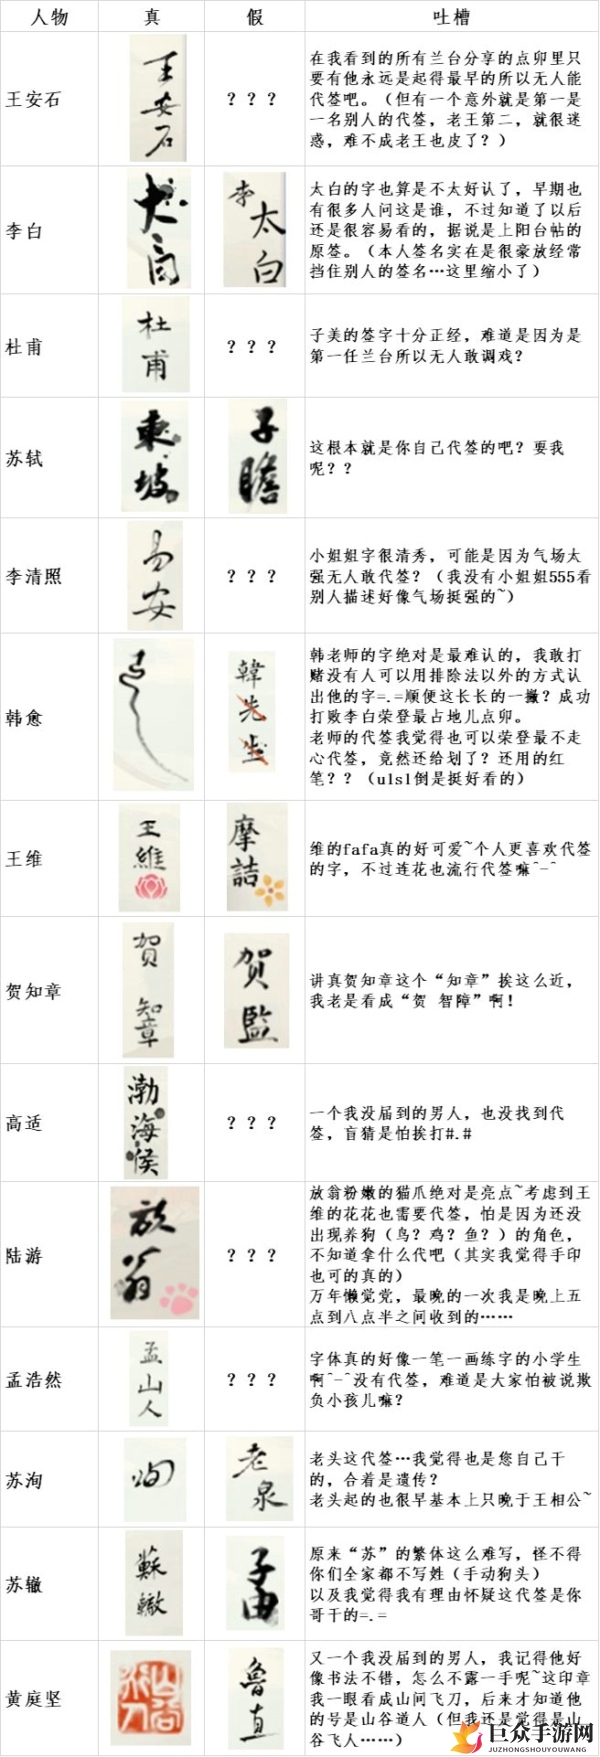 人物 真 假 吐槽
王安石
王安石
？？？
在我看到的所有兰台分享的点卯里只
要有他永远是起得最早的所以无人能
代签吧。（但有一个意外就是第一是
一名别人的代签，老王第二，就很迷
惑，难不成老王也皮了？）
李白
太白
李太白
太白的字也算是不太好认了，早期也
有很多人问这是谁，不过知道了以后
还是很容易看的，据说是上阳台帖的
原签。（本人签名实在是很豪放经常
挡住别人的签名…这里缩小了）
杜甫
杜甫
？？？
子美的签字十分正经，难道是因为是
第一任兰台所以无人敢调戏？
苏轼
東坡
子瞻
这根本就是你自己代签的吧？要我
呢？？
李清照
易安
？？？
小姐姐字很清秀，可能是因为气场太
强无人敢代签？（我没有小姐姐555看
别人描述好像气场挺强的~）
韩愈
韓先生
韩老师的字绝对是最难认的，我敢打
赌没有人可以用排除法以外的方式认
出他的字=.=顺便这长长的一撇？成功
打败李白荣登最占地儿点卯。
老师的代签我觉得也可以荣登最不走
心代签，竟然还给划了？还用的红
笔？？（ulsl倒是挺好看的）
王维
王維
摩詰
维的fafa真的好可爱~个人更喜欢代签
的字，不过连花也流行代签嘛^-^
贺知章
賀知章
賀監
讲真贺知章这个“知章”挨这么近，
我老是看成“贺 智障”啊！
高适
渤海侯
？？？
一个我没届到的男人，也没找到代
签，盲猜是怕挨打#.#
陆游
放翁
？？？
放翁粉嫩的猫爪绝对是亮点~考虑到王
维的花花也需要代签，怕是因为还没
出现养狗（鸟？鸡？鱼？）的角色，
不知道拿什么代吧（其实我觉得手印
也可的真的）
万年懒觉党，最晚的一次我是晚上五
点到八点半之间收到的……
孟浩然
孟山人
？？？
字体真的好像一笔一画练字的小学生
啊^-^没有代签，难道是大家怕被说欺
负小孩儿嘛？
苏洵
洵
老泉
老头这代签…我觉得也是您自己干
的，合着是遗传？
老头起的也很早基本上只晚于王相公~
苏辙
蘇轍
子由
原来“苏”的繁体这么难写，怪不得
你们全家都不写姓（手动狗头）
以及我觉得我有理由怀疑这代签是你
哥干的=.=
黄庭坚
魯直
又一个我没届到的男人，我记得他好
像书法不错，怎么不露一手呢~这印章
我一眼看成山间飞刀，后来才知道他
的号是山谷道人（但我还是觉得是山
谷飞人……）
巨众手游网
JUZHONGSHOUYOUWANG